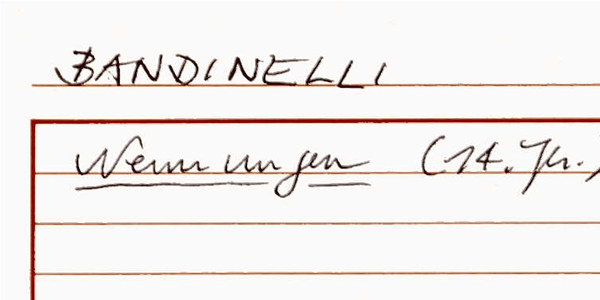 BANDINELLI
Nennungen (14. Jh.)